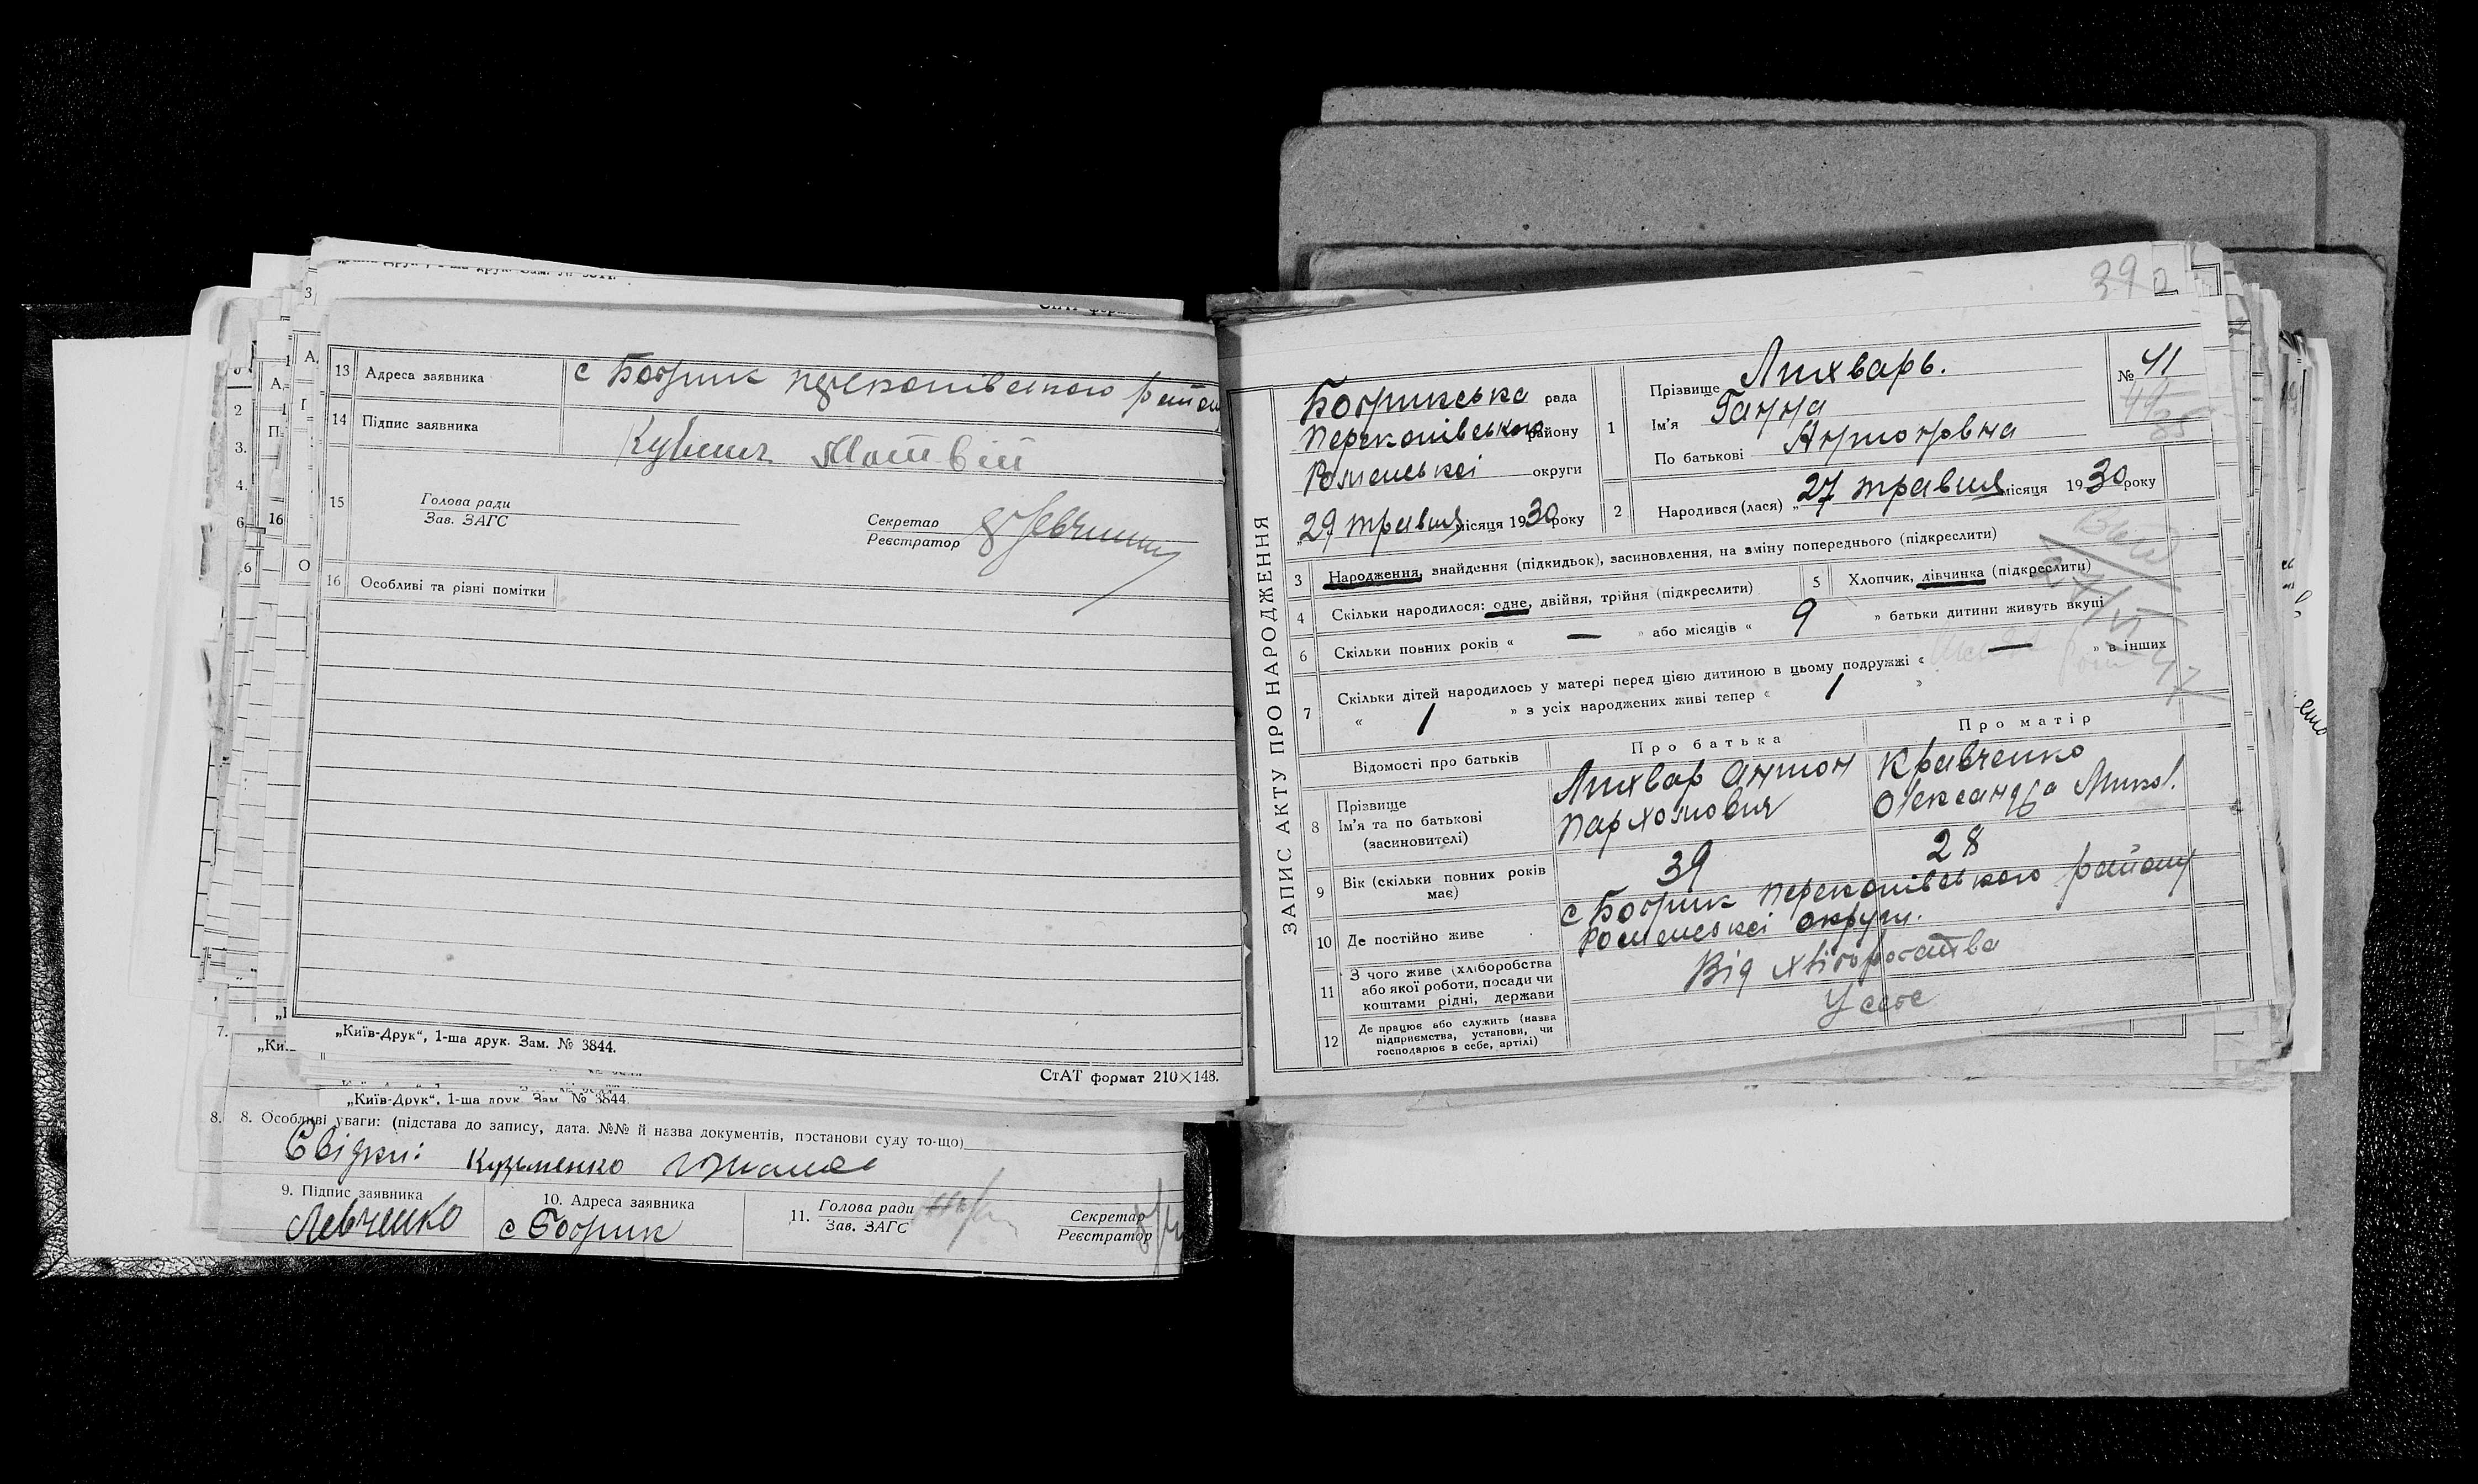 13 Адреса заявника с Бобрик перекопівського район
14 Підпис заявника Матвій
15 Голова ради
Зав. ЗАГС
Секретар
Реєстратор
16 Особливі та різні помітки
„Київ-Друк“, 1-ша друк. Зам. № 3844.
СтАТ формат 210×148.
„Київ-Друк“, 1-ша друк. Зам. № 3844.
8. Особливі уваги: (підстава до запису, дата. №№ й назва документів, постанови суду то-що)
Свідки: Кузьменко
9. Підпис заявника
Левченко
10. Адреса заявника
с Бобрик
11. Голова ради
Зав. ЗАГС
Секретар
Реєстратор
390
ЗАПИС АКТУ ПРО НАРОДЖЕННЯ
Бобрикська рада
Перекопівського району
Роменської округи
„29 травня місяця 1930 року
1 Прізвище Лихварь.
Ім'я Ганна
По батькові Антоновна
№ 41
2 Народився (лася) „27 травня місяця 1930 року
3 Народження, знайдення (підкидьок), засиновлення, на зміну попереднього (підкреслити)
4 Скільки народилося: одне, двійня, трійня (підкреслити)
5 Хлопчик, дівчинка (підкреслити)
6 Скільки повних років « — » або місяців « 9 » батьки дитини живуть вкупі
7 Скільки дітей народилось у матері перед цією дитиною в цьому подружжі « — » в інших
« 1 » з усіх народжених живі тепер « 1 »
Відомості про батьків
Про батька
Про матір
8 Прізвище
Ім'я та по батькові
(засиновителі)
Лихвар Антон
Пархомович
Кравченко
Олександра Микол.
9 Вік (скільки повних років має)
39
28
10 Де постійно живе
с Бобрик Перекопівського району
Роменської округи.
11 З чого живе (хліборобства
або якої роботи, посади чи
коштами рідні, держави
Від хліборобства
12 Де працює або служить (назва
підприємства, установи, чи
господарює в себе, артілі)
У себе